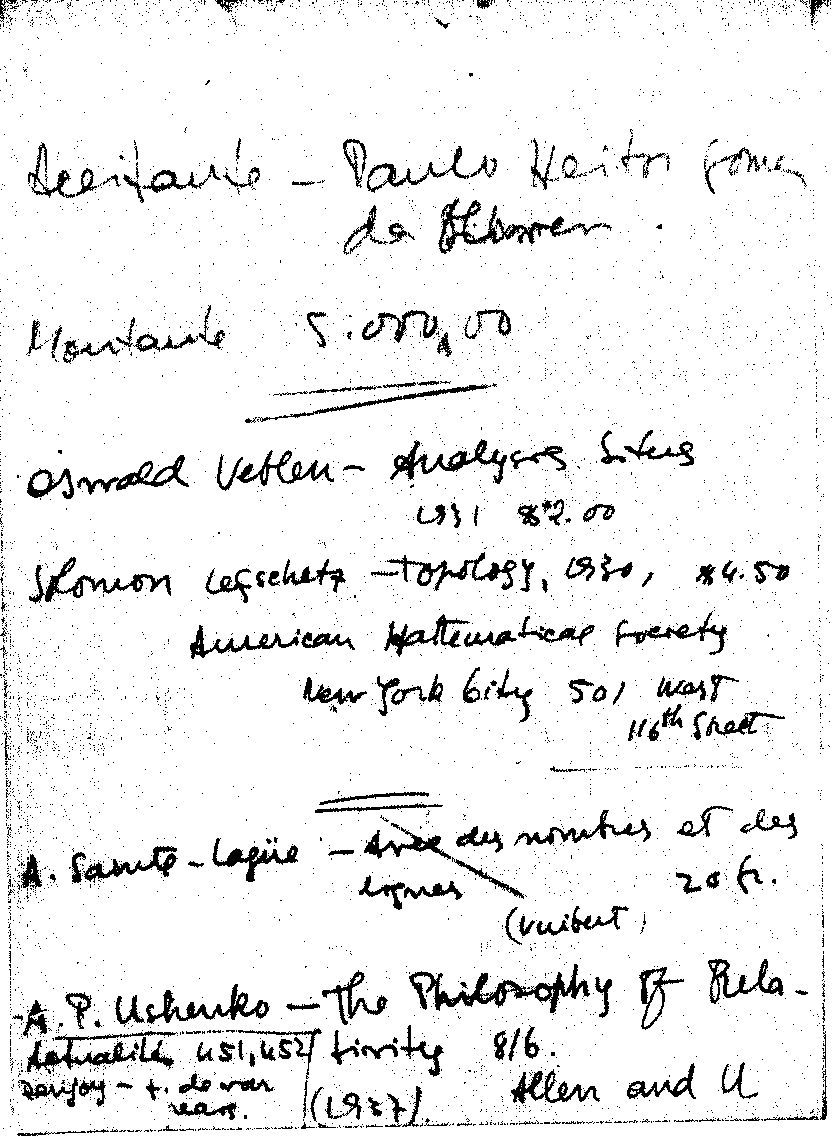 Aceitante - Paulo Heitor Gomes
da
Montante 5.000,00
Oswald Veblen - Analysis Situs
1931 $2.00
Solomon Lefschetz - Topology, 1930, $4.50
American Mathematical Society
New York City 501 West
116th Street
A. Sainte-Lagüe - Avec des nombres et des
lignes 20 fr.
(Vuibert)
A. P. Ushenko - The Philosophy of Rela-
Actualités 451, 452 tivity 8/6.
Denjoy - f. de var Allen and U
(1937).